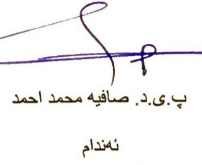 پ.ی.د. صافیه محمد احمد
ئەندام